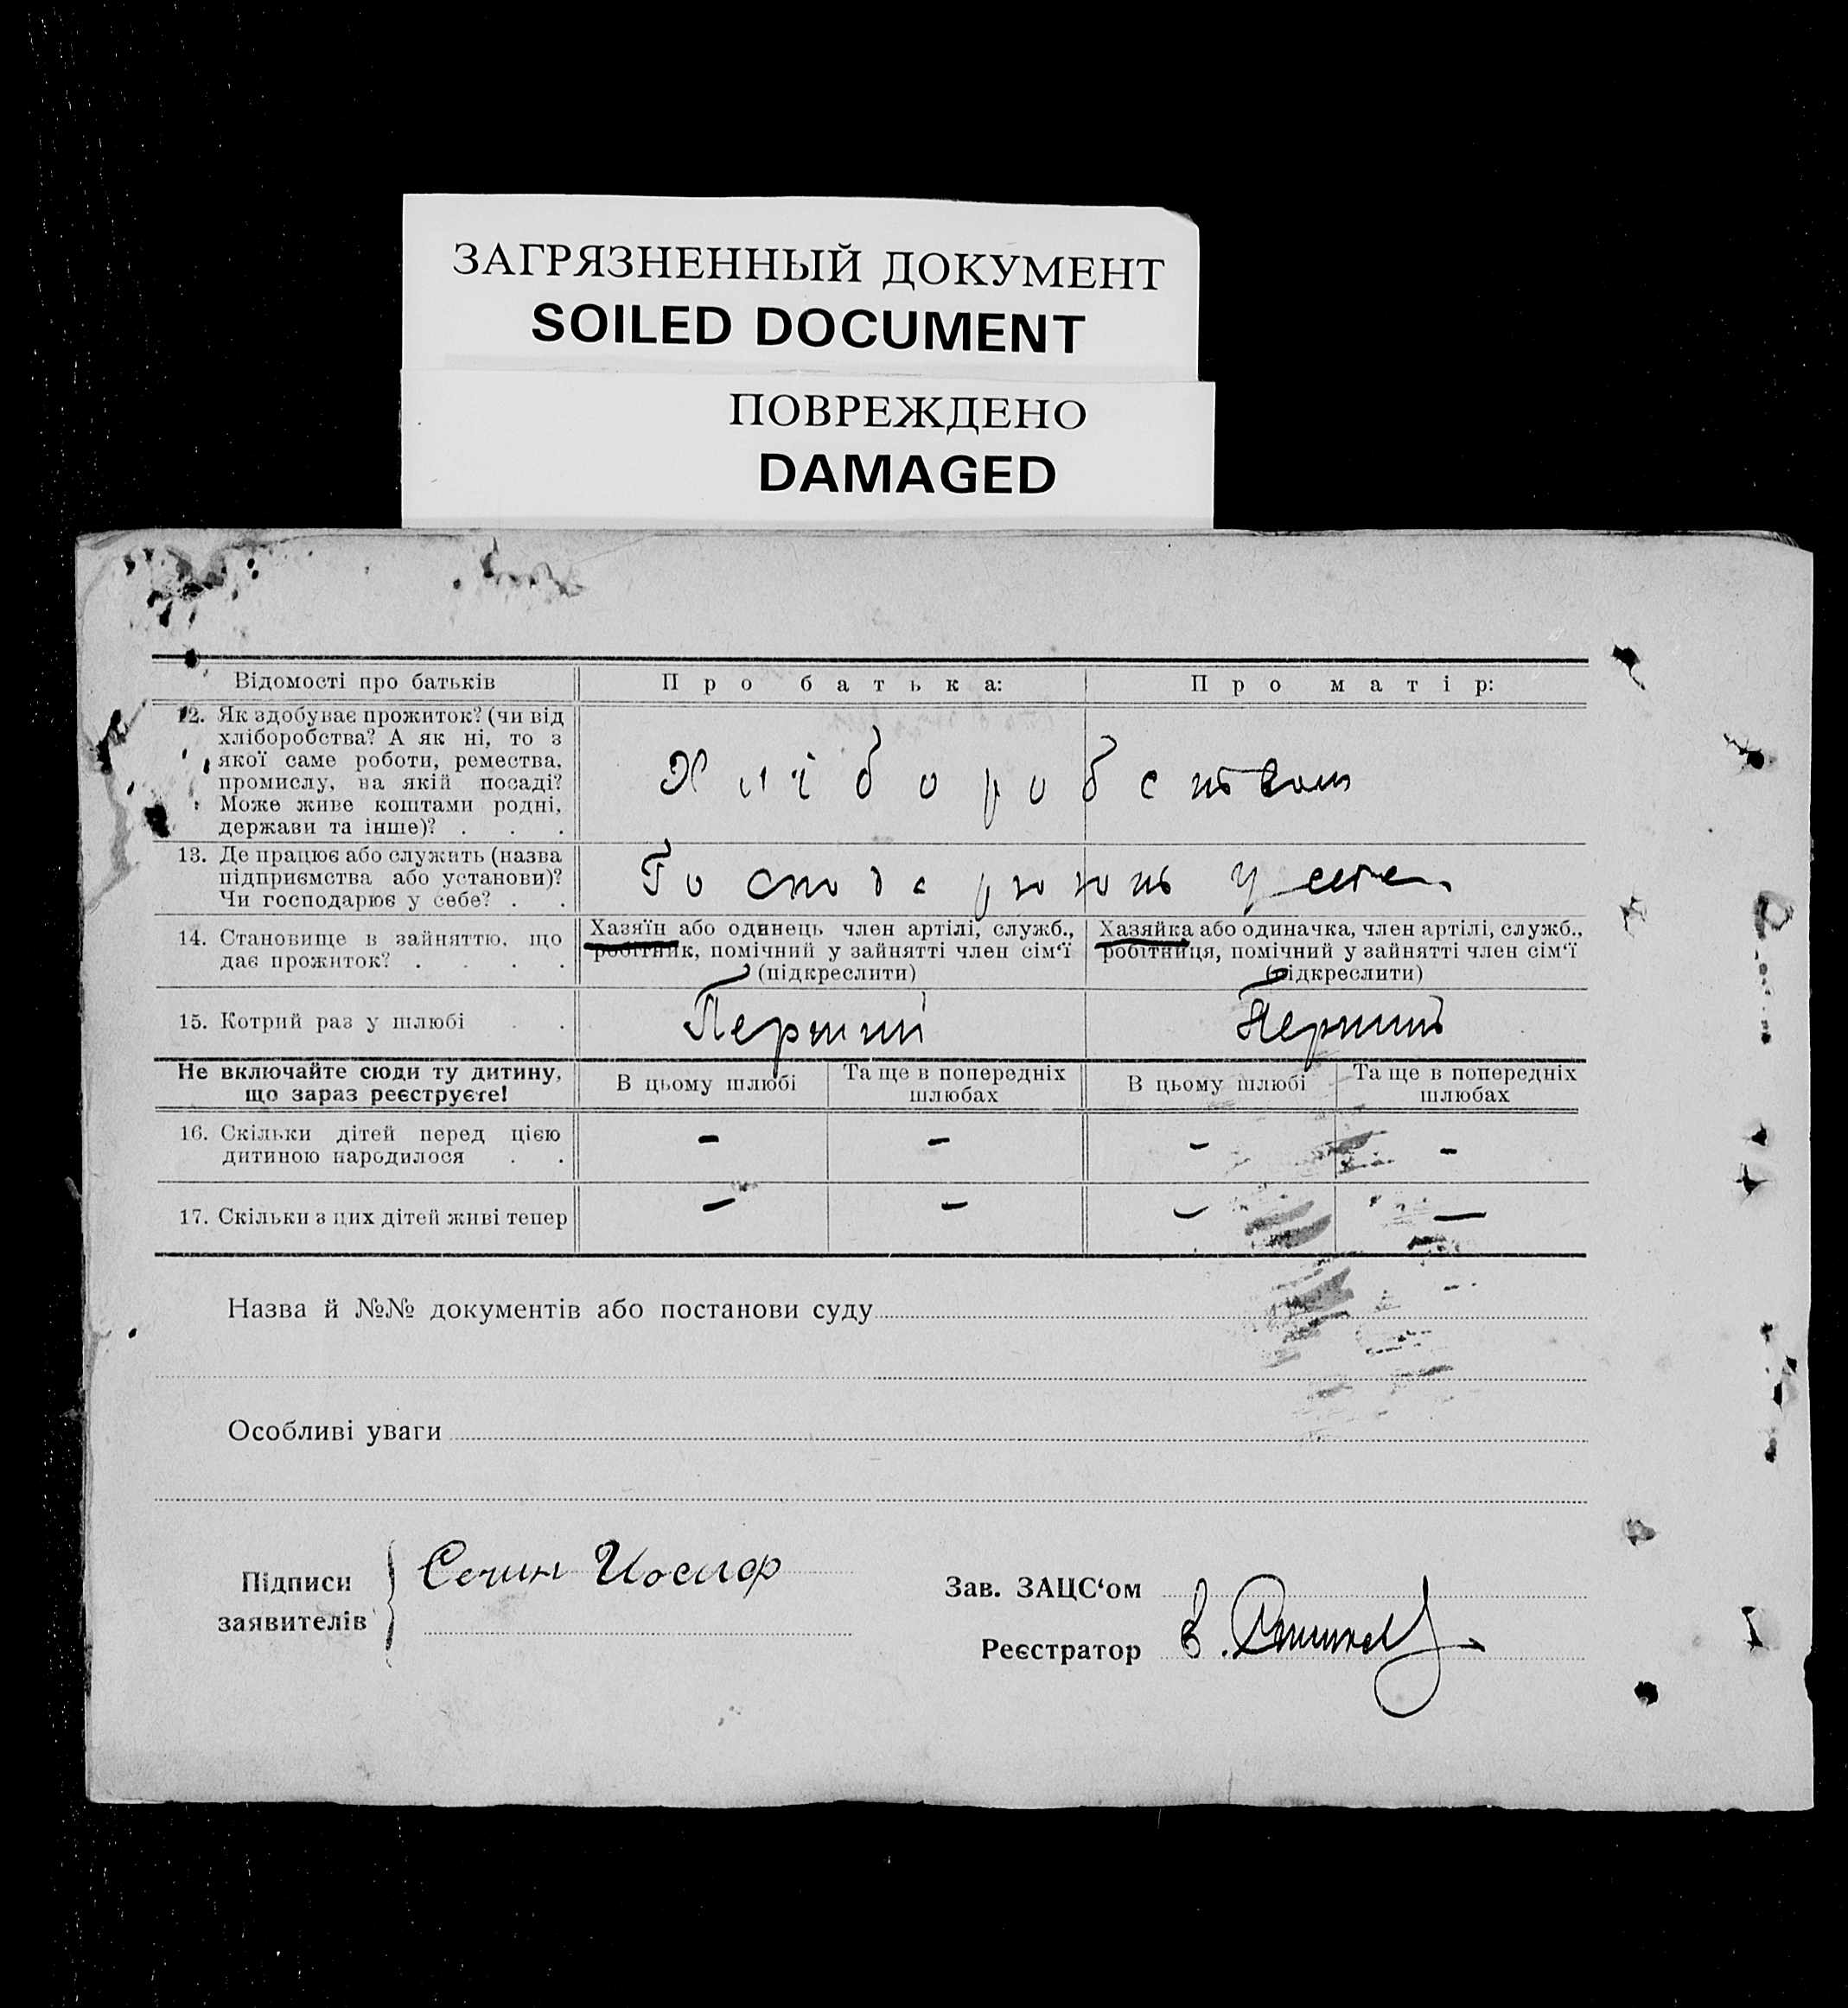 ЗАГРЯЗНЕННЫЙ ДОКУМЕНТ
SOILED DOCUMENT
ПОВРЕЖДЕНО
DAMAGED
Відомості про батьків
Про батька:
Про матір:
12. Як здобуває прожиток? (чи від
хліборобства? А як ні, то з
якої саме роботи, ремества,
промислу, на якій посаді?
Може живе коштами родні,
держави та інше)? . . .
Хліборобством
13. Де працює або служить (назва
підприємства або установи)?
Чи господарює у себе? . .
Господарюють у себе.
14. Становище в зайняттю, що
дає прожиток? . . . .
Хазяїн або одинець член артілі, служб.,
робітник, помічний у зайнятті член сім‘ї
(підкреслити)
Хазяйка або одиначка, член артілі, служб.,
робітниця, помічний у зайнятті член сім‘ї
(підкреслити)
15. Котрий раз у шлюбі . .
Перший
Перший
Не включайте сюди ту дитину,
що зараз реєструєте!
В цьому шлюбі
Та ще в попередніх
шлюбах
В цьому шлюбі
Та ще в попередніх
шлюбах
16. Скільки дітей перед цією
дитиною народилося . .
– – – –
17. Скільки з цих дітей живі тепер
– – – –
Назва й №№ документів або постанови суду
Особливі уваги
Підписи
заявителів
Сечин Иосиф
Зав. ЗАЦС‘ом
Реєстратор
В.